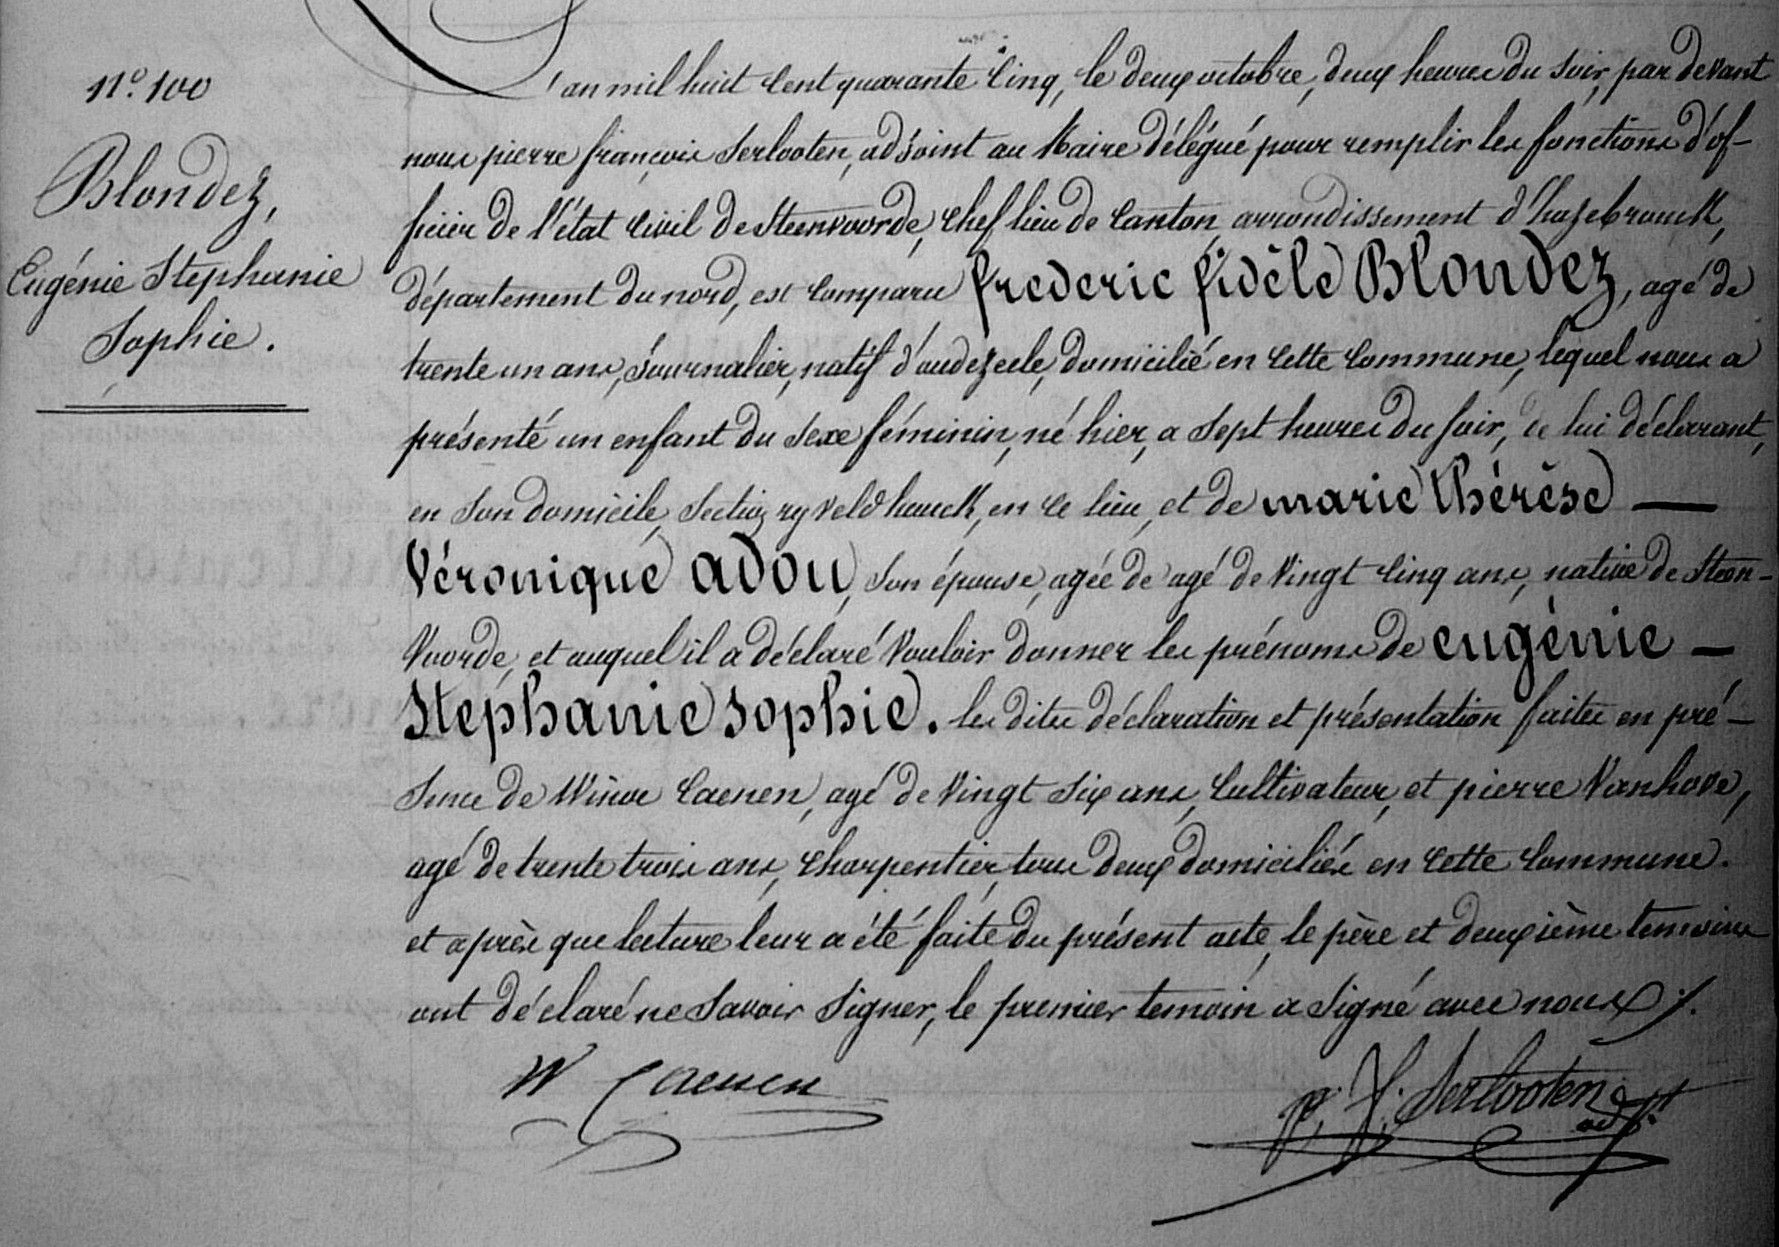 N.° 100
Blondez,
Eugénie Stephanie
Sophie.
L'an mil huit cent quarante cinq, le deux octobre, deux heures du soir, par devant
nous pierre françois Serlooten, adjoint au Maire délégué pour remplir les fonctions d'of-
ficier de l'état civil de Steenvoorde, chef lieu de canton, arrondissement d'hazebrouck,
département du nord, est comparu frederic fidèle Blondez, agé de
trente un ans, journalier, natif d'oudezeele, domicilié en cette commune, lequel nous a
présenté un enfant du sexe féminin, né hier, a sept heures du soir, de lui déclarant,
en son domicile, section ryveld houck, en ce lieu, et de marie thérèse —
Véronique adou, son épouse, agée de agé de vingt cinq ans, native de Steen-
voorde, et auquel il a déclaré vouloir donner les prénoms de eugènie —
Stephanie Sophie. les dites déclaration et présentation faites en pré-
sence de Winoc Caenen, agé de vingt six ans, cultivateur, et pierre Vanhove,
agé de trente trois ans, charpentier, tous deux domiciliés en cette commune.
et après que lecture leur a été faite du présent acte, le père et deuxième temoins
ont déclaré ne savoir signer, le premier temoin a signé avec nous ./.
W Caenen
P. f. Serlooten
adjt